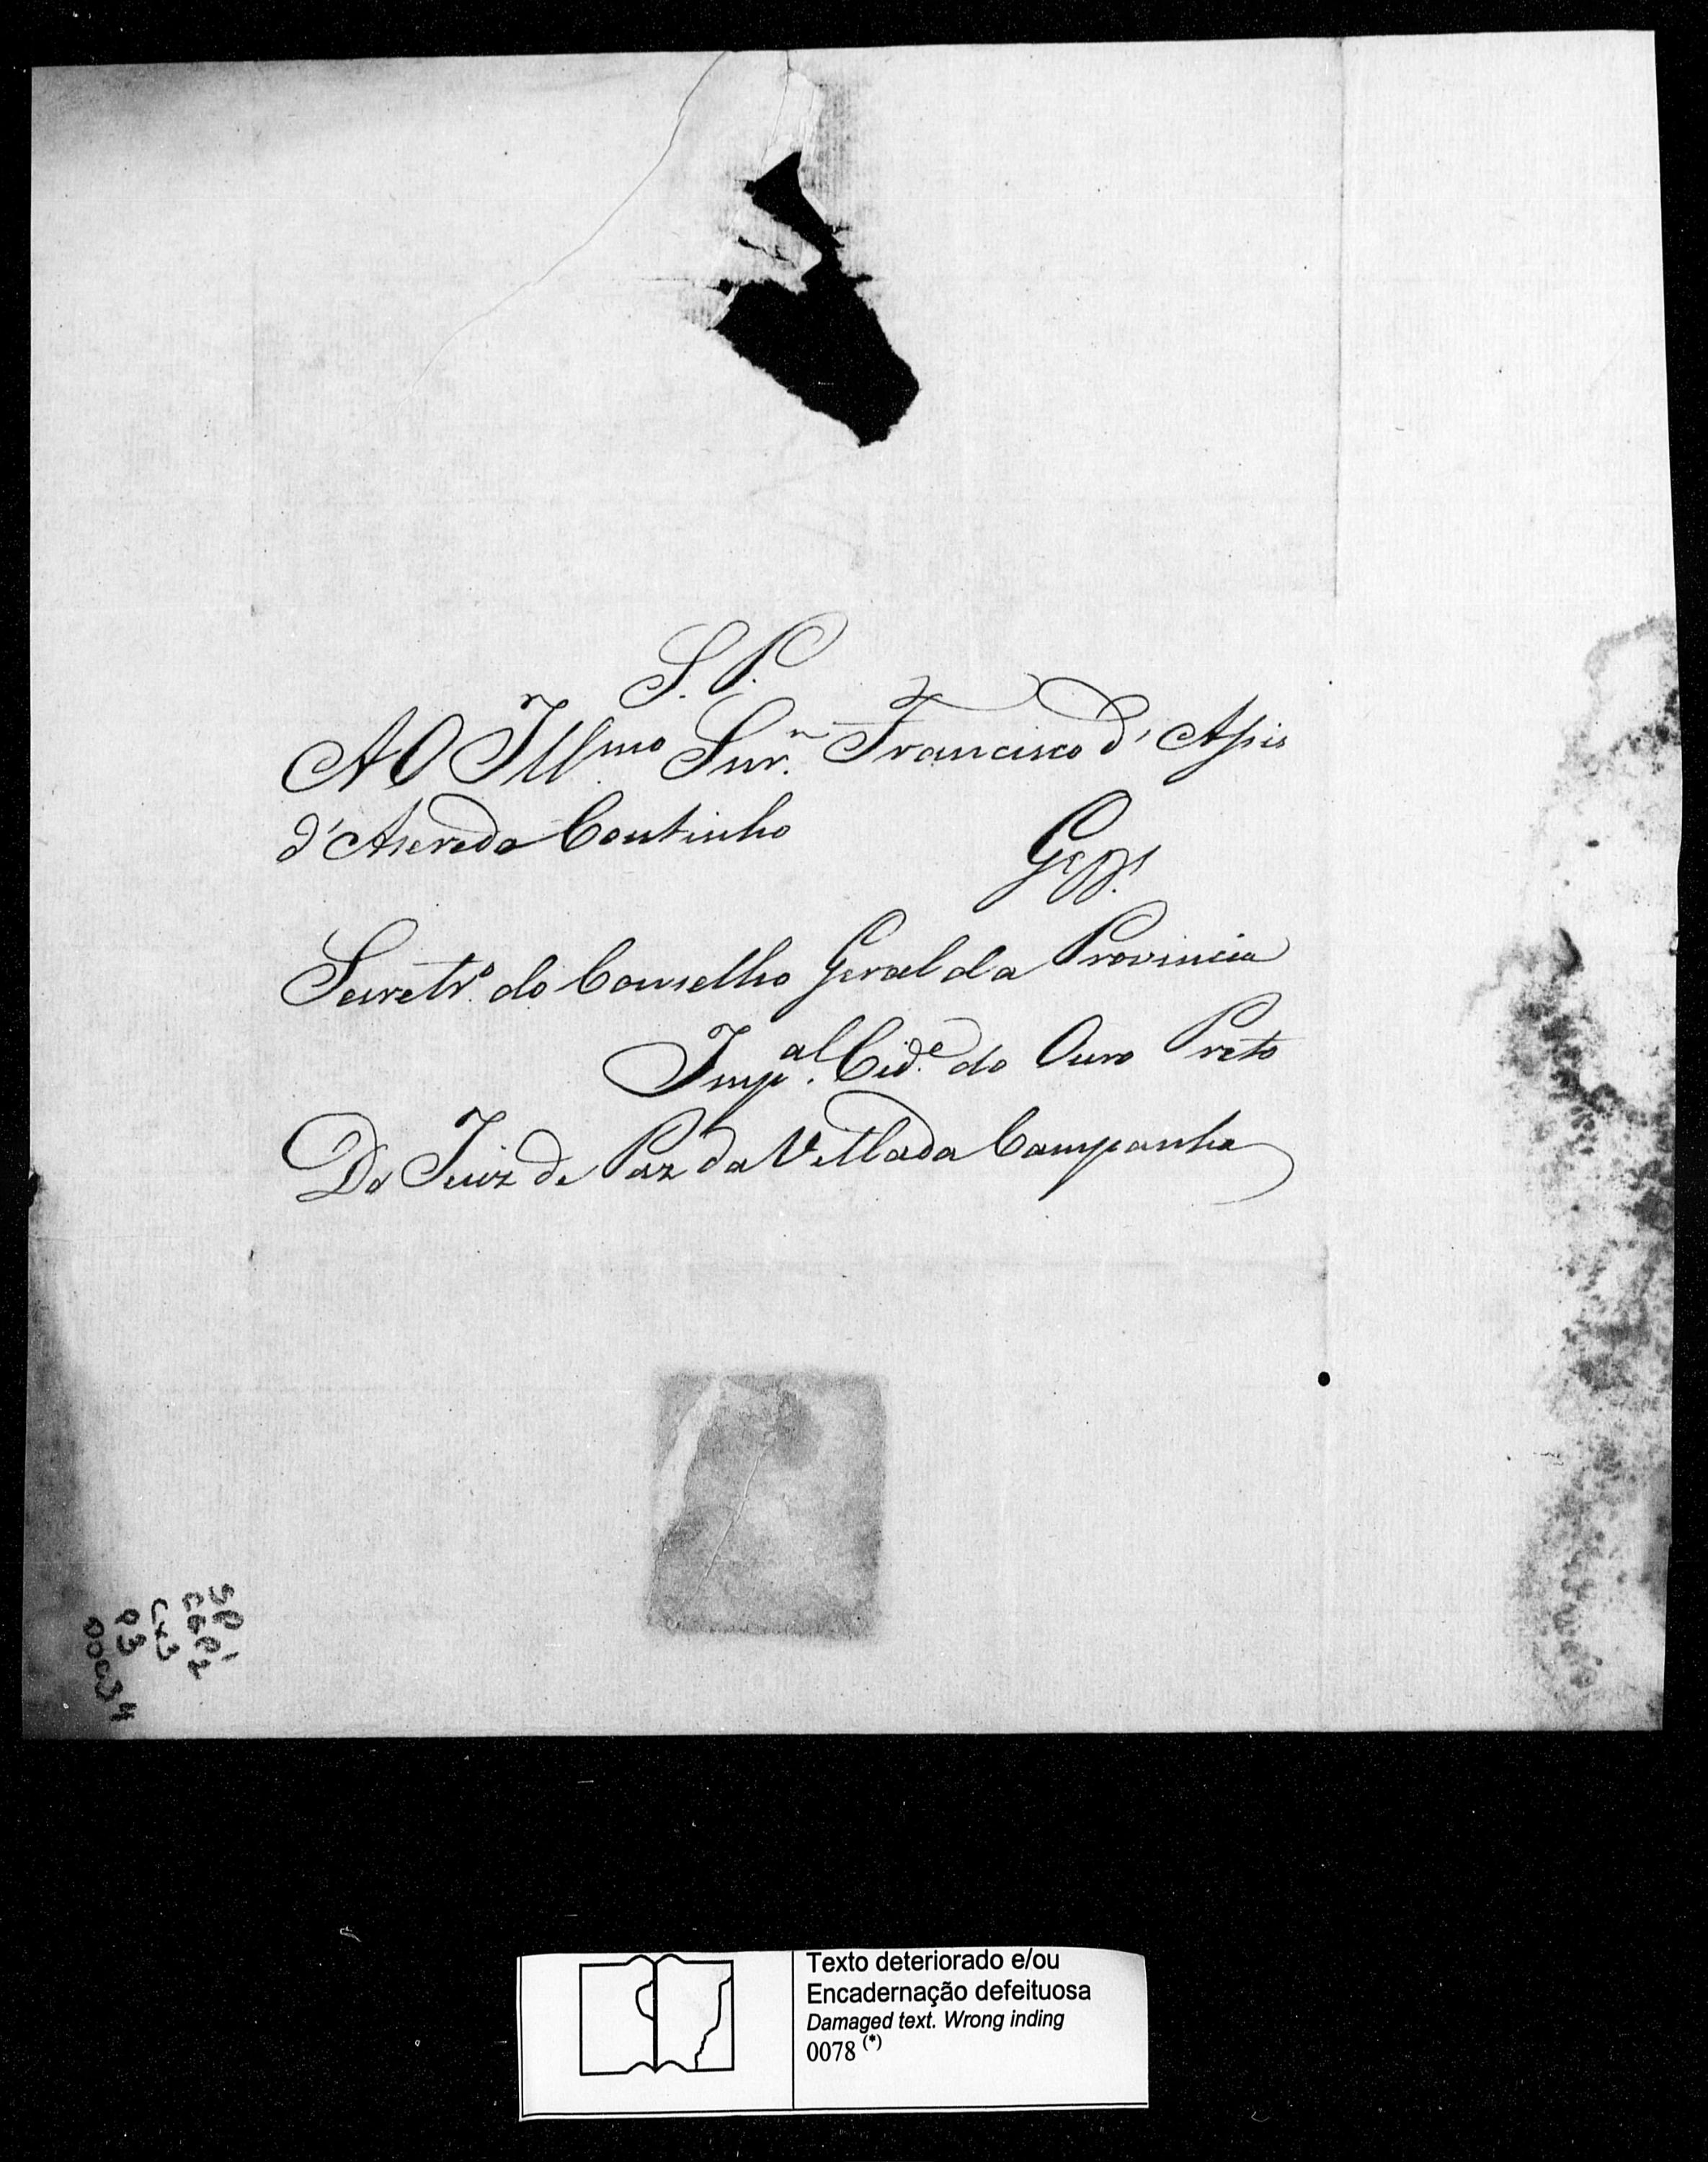 S. P.
AO Ill.mo Snr.' Francisco d' Assis
d'Aseredo Coutinho
Secretr.o do Conselho Geral da Provincia
Imp.al Cid.e do Ouro Preto
Do Juiz de Paz da Villa da Campanha
SP 1
CGP2
CX3
P3
00034
Texto deteriorado e/ou
Encadernação defeituosa
Damaged text. Wrong inding
0078 (*)